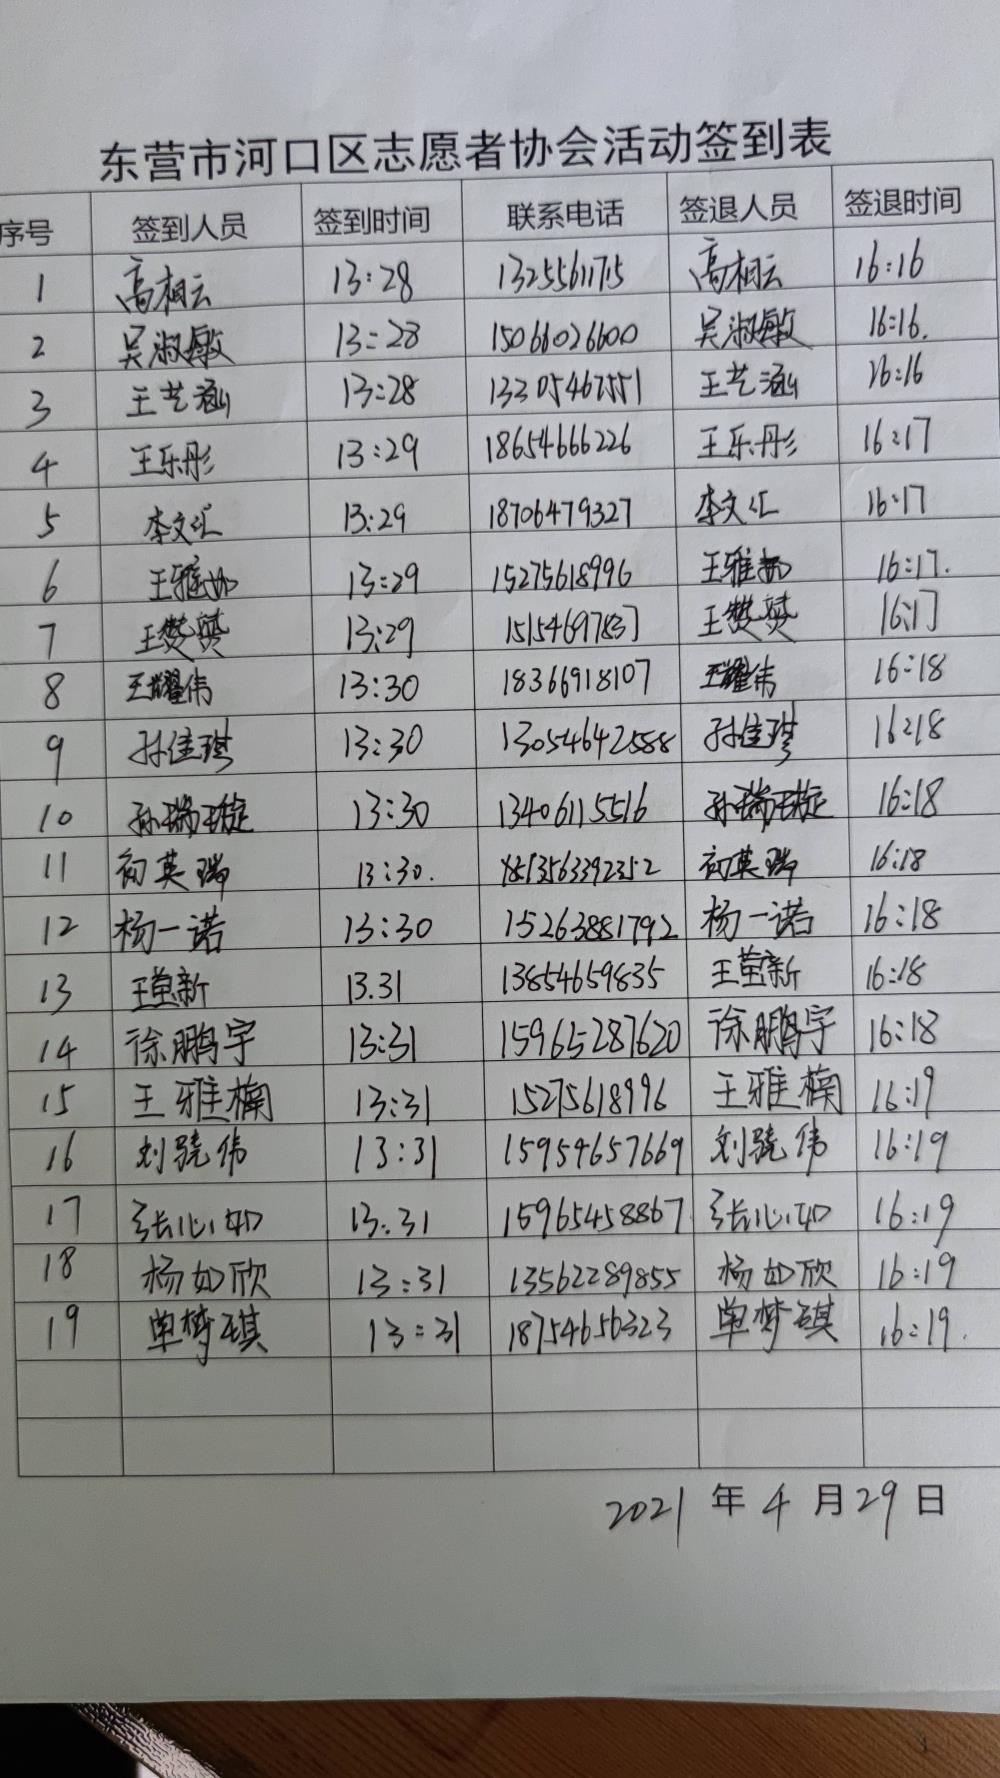 东营市河口区志愿者协会活动签到表
序号 签到人员 签到时间 联系电话 签退人员 签退时间
1 高相云 13:28 13255611715 高相云 16:16
2 吴淑敏 13:28 15066026600 吴淑敏 16:16.
3 王艺涵 13:28 13305467551 王艺涵 16:16
4 王乐彤 13:29 18654666226 王乐彤 16:17
5 李文汇 13:29 18706479327 李文汇 16:17
6 13:29 15275618996 16:17.
7 王赞赞 13:29 15154697837 王赞赞 16:17
8 王耀伟 13:30 18366918107 王耀伟 16:18
9 孙佳琪 13:30 13054642588 孙佳琪 16:18
10 孙瑞璇 13:30 13406115516 孙瑞璇 16:18
11 初英瑞 13:30. 13563392352 初英瑞 16:18
12 杨一诺 13:30 15263881792 杨一诺 16:18
13 13.31 13854659835 16:18
14 徐鹏宇 13:31 15965287620 徐鹏宇 16:18
15 王雅楠 13:31 15275618996 王雅楠 16:19
16 刘骁伟 13:31 15954657669 刘骁伟 16:19
17 张心如 13.31 15965458867 张心如 16:19
18 杨如欣 13:31 13562289855 杨如欣 16:19
19 单梦琪 13:31 18754656323 单梦琪 16:19.
2021年4月29日